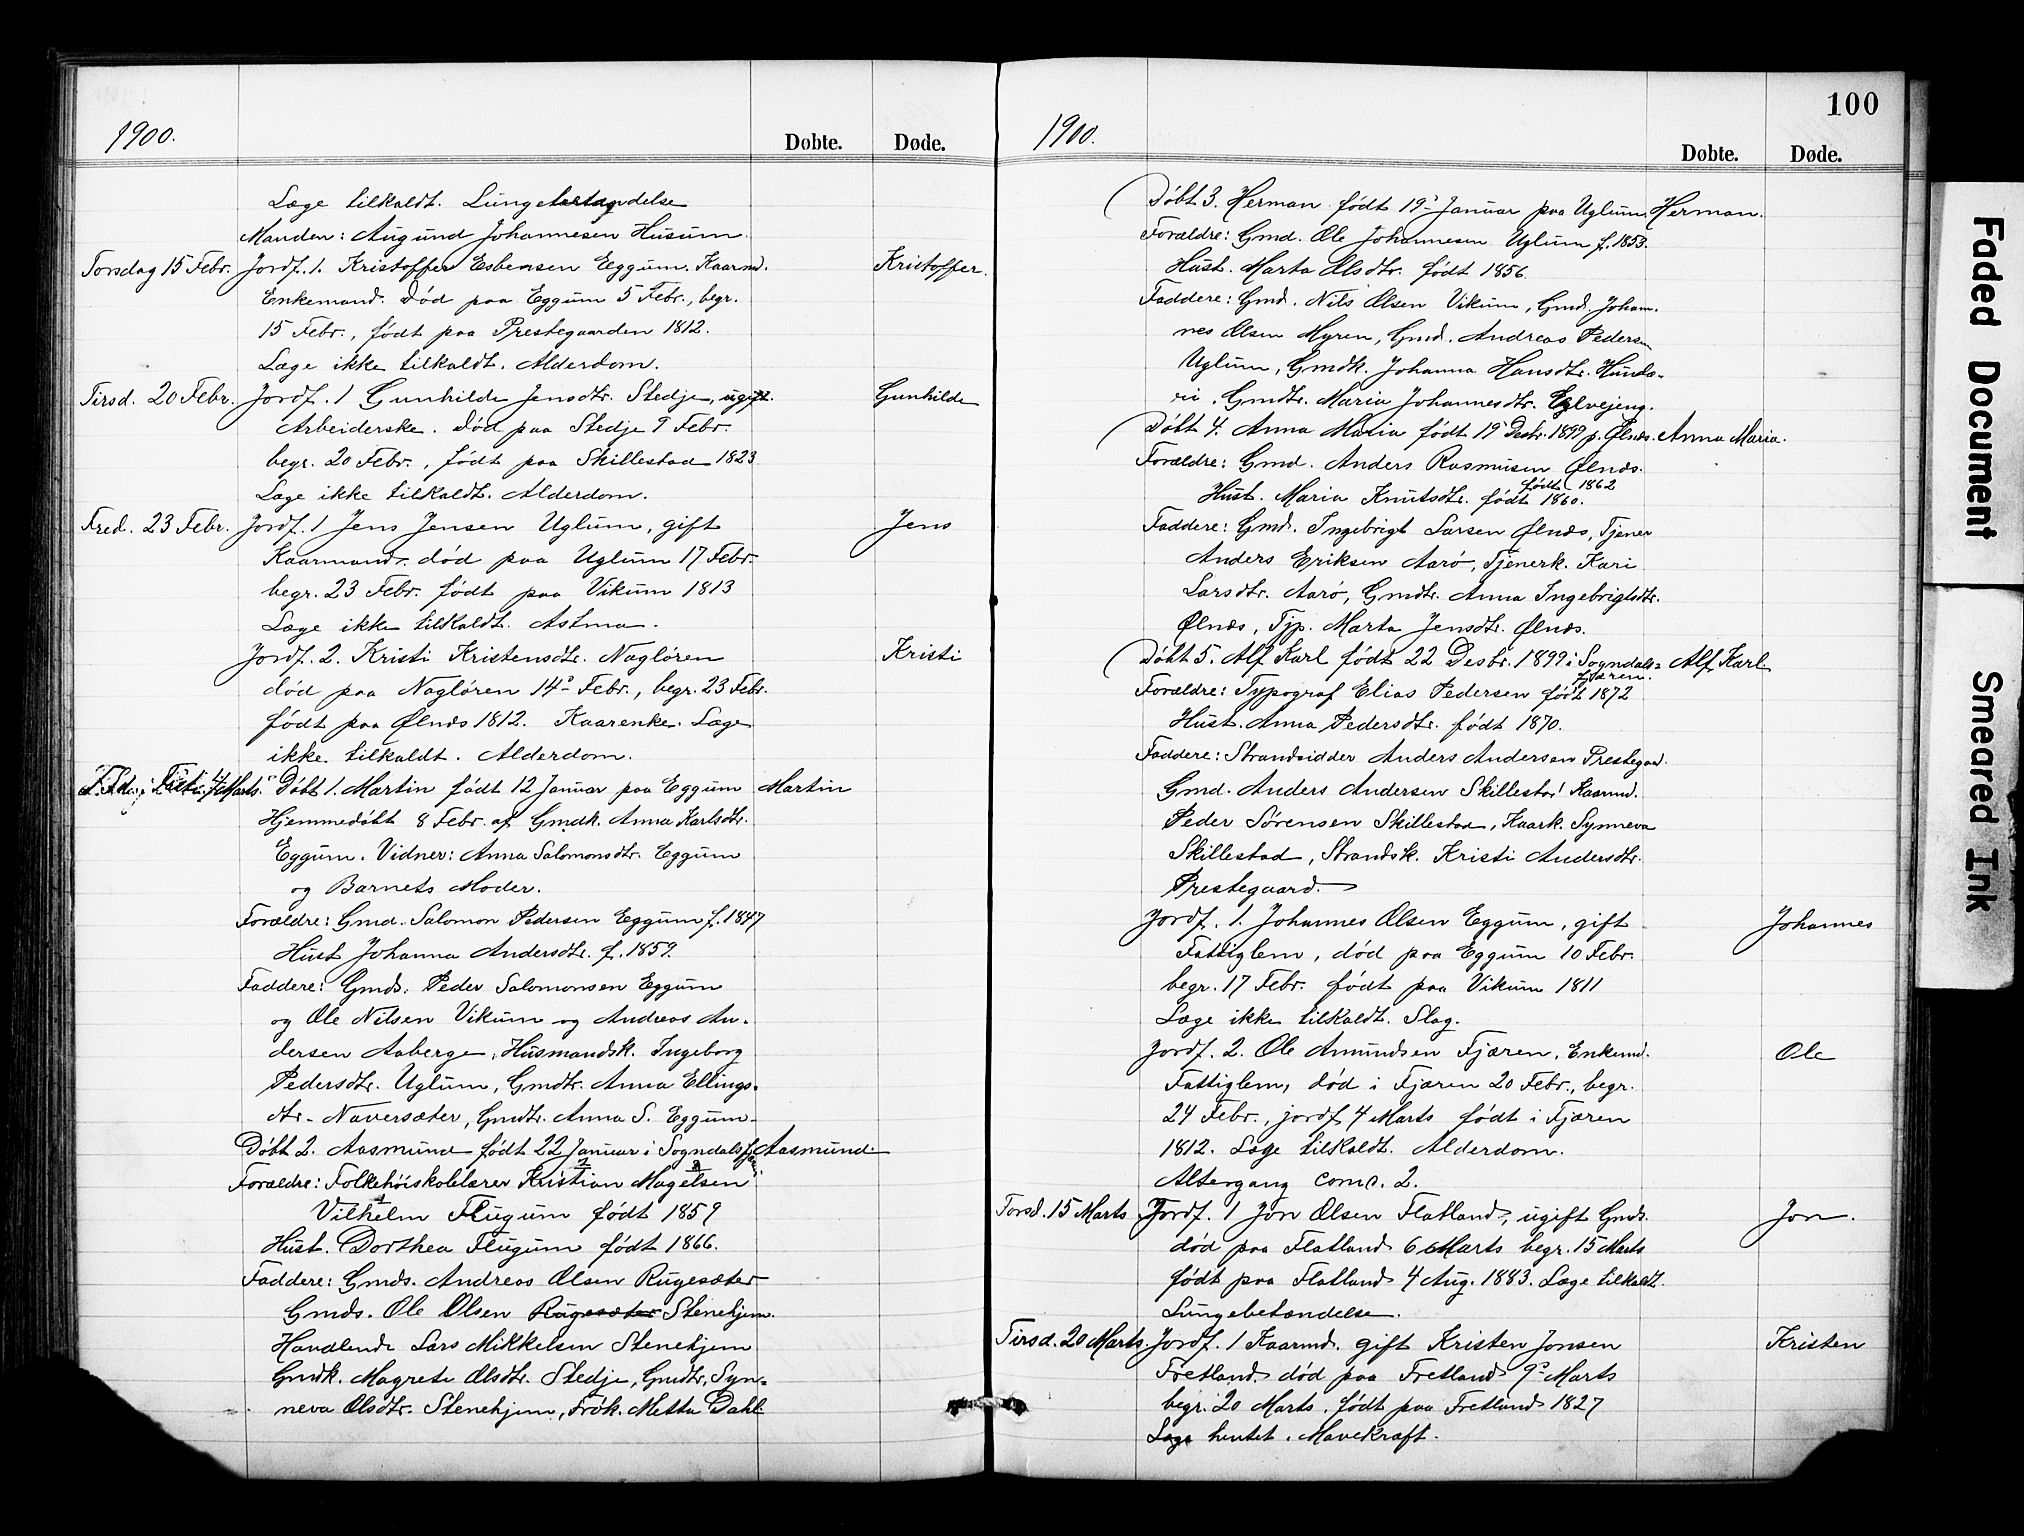 1900.
Døbte.
Døde.
Læge tilkaldt. Lungebetændelse
Manden: Augund Johannesen Husum.
Torsdag 15 Febr. Jordf. 1. Kristoffer Esbensen Eggum. Kaarmd. Kristoffer.
Enkemand. Død paa Eggum 5 Febr., begr.
15 Febr., født paa Prestegaarden 1812.
Læge ikke tilkaldt. Alderdom.
Tirsd. 20 Febr. Jordf. 1 Gunhilde Jensdtr. Stedje, ugift. Gunhilde
Arbeiderske. Død paa Stedje 9 Febr.
begr. 20 Febr., født paa Skillestad 1823
Læge ikke tilkaldt. Alderdom.
Fred. 23 Febr. Jordf. 1 Jens Jensen Uglum, gift Jens
Kaarmand. død paa Uglum 17 Febr.
begr. 23 Febr. født paa Vikum 1813
Læge ikke tilkaldt. Astma.
Jordf. 2. Kristi Kristensdtr. Nagløren Kristi
død paa Nagløren 14de Febr., begr. 23 Febr.
født paa Ølnæs 1812. Kaarenke. Læge
ikke tilkaldt. Alderdom.
Faste 4 Marts. Døbt 1. Martin født 12 Januar paa Eggum Martin
Hjemmedøbt 8 Febr. af Gmdk. Anna Karlsdtr.
Eggum. Vidner: Anna Salomonsdtr. Eggum
og Barnets Moder.
Forældre: Gmd. Salomon Pedersen Eggum f. 1847
Hust Johanna Andersdtr. f. 1859.
Faddere: Gmds. Peder Salomonsen Eggum
og Ole Nilsen Vikum og Andreas An-
dersen Aaberge, Husmandsk. Ingeborg
Pedersdtr. Uglum, Gmdtr. Anna Ellings-
dtr. Naversæter, Gmdtr. Anna S. Eggum.
Døbt 2. Aasmund født 22 Januar i Sogndalsfjæren Aasmund.
Forældre: Folkehøiskolelærer Kristian Magelsen
Vilhelm Flugum født 1859
Hust. Dorthea Flugum født 1866.
Faddere: Gmds. Andreas Olsen Rugesæter
Gmds. Ole Olsen Rugesæter Stenehjem.
Handlende Lars Mikkelsen Stenehjem
Gmdk. Magrete Olsdtr. Stedje, Gmdtr. Syn-
neva Olsdtr. Stenehjem, Frøk. Metta Dahl
1900.
Døbte.
Døde.
100
Døbt 3. Herman født 19de Januar paa Uglum. Herman.
Forældre: Gmd. Ole Johannesen Uglum f. 1853.
Hust. Marta Olsdtr. født 1856.
Faddere: Gmd. Nils Olsen Vikum, Gmd. Johan-
nes Olsen Myren, Gmd. Andreas Pedersen
Uglum, Gmdk. Johanna Hansdtr. Hundæ-
ri, Gmdtr. Maria Johannesdtr. Eglvejeng.
Døbt 4. Anna Maria født 19 Desbr. 1899 p. Ølnæs. Anna Maria.
Forældre: Gmd. Anders Rasmusen Ølnæs.
født 1862
Hust. Maria Knutsdtr. født 1860.
Faddere: Gmd. Ingebrigt Larsen Ølnæs, Tjener
Anders Eriksen Aarø, Tjenerk. Kari
Larsdtr. Aarø, Gmdtr. Anna Ingebrigtsdtr.
Ølnæs, Tjp. Marta Jensdtr. Ølnæs.
Døbt 5. Alf Karl født 22 Desbr. 1899 i Sogndals- Alf Karl
fjæren.
Forældre: Typograf Elias Pedersen født 1872
Hust. Anna Pedersdtr. født 1870.
Faddere: Strandsidder Anders Andersen Prestegad.
Gmd. Anders Andersen Skillestad Kaarmd.
Peder Sørensen Skillestad, Kaark. Synneva
Skillestad, Strandsk. Kristi Andersdtr.
Prestegaard.
Jordf. 1. Johannes Olsen Eggum, gift Johannes
Fattiglem, død paa Eggum 10 Febr.
begr. 17 Febr. født paa Vikum 1811
Læge ikke tilkaldt. Slag.
Jordf. 2. Ole Amundsen Fjæren, Enkemd. Ole
Fattiglem, død i Fjæren 20 Febr., begr.
24 Febr., jordf. 4 Marts født i Fjæren
1812. Læge tilkaldt. Alderdom.
Altergang Comm. 2.
Torsd. 15 Marts Jordf. 1 Jon Olsen Flatland, ugift Gmds. Jon.
død paa Flatland 6 Marts begr. 15 Marts
født paa Flatland 4 Aug. 1883. Læge tilkaldt.
Lungebetændelse.
Tirsd. 20 Marts. Jordf. 1 Kaarmd. gift Kristen Jonsen Kristen
Fretland død paa Fretland 9de Marts
begr. 20 Marts. født paa Fretland 1827
Læge hentet. Mavekræft.
Faded Document
Smeared Ink